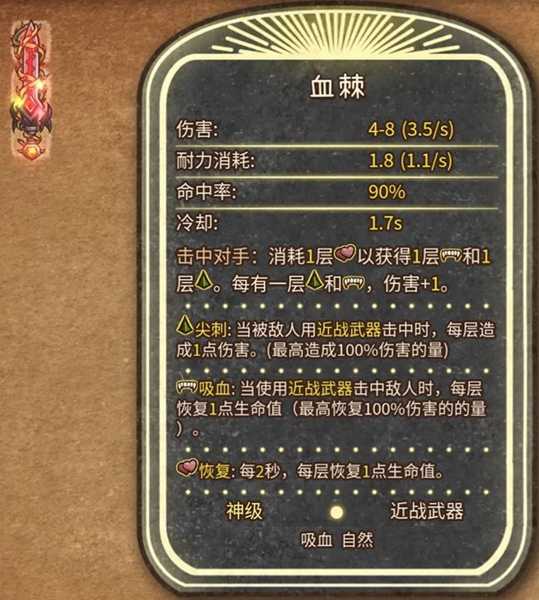 血棘
伤害: 4-8 (3.5/s)
耐力消耗: 1.8 (1.1/s)
命中率: 90%
冷却: 1.7s
击中对手：消耗1层以获得1层和1
层。每有一层和，伤害+1。
尖刺: 当被敌人用近战武器击中时，每层造
成1点伤害。(最高造成100%伤害的量)
吸血: 当使用近战武器击中敌人时，每层
恢复1点生命值（最高恢复100%伤害的的量
）。
恢复: 每2秒，每层恢复1点生命值。
神级 近战武器
吸血 自然